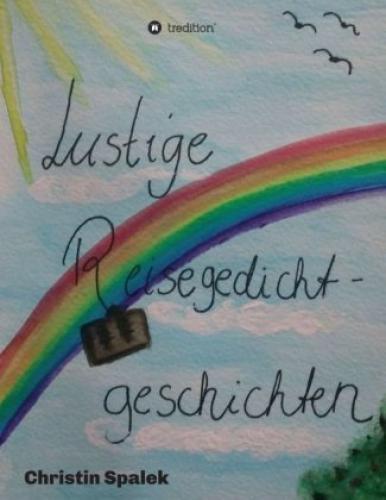 tredition®
Lustige
Reisegedicht-
geschichten
Christin Spalek